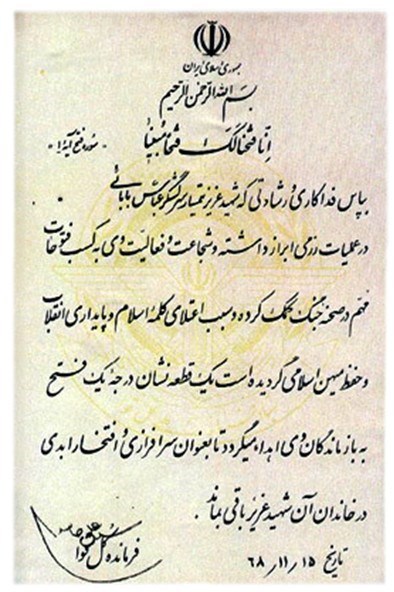 جمهوری اسلامی ایران
بسم الله الرحمن الرحیم
انا فتحنا لک فتحا مبینا سوره فتح آیه ۱
بپاس فداکاری و رشادتی که شهید عزیز تیمسار سرلشگر عباس بابائی
در عملیات رزمی ابراز داشته و شجاعت و فعالیت وی به کسب فتوحات
مهم در صحنه جنگ کمک کرده و سبب اعتلای کلمه اسلام و پایداری انقلاب
و حفظ میهن اسلامی گردیده است یک قطعه نشان درجه یک فتح
به بازماندگان وی اهداء میگردد تا بعنوان سرافرازی و افتخار ابدی
در خاندان آن شهید عزیز باقی بماند
تاریخ ۶۸/۱۱/۱۵
فرمانده کل قوا